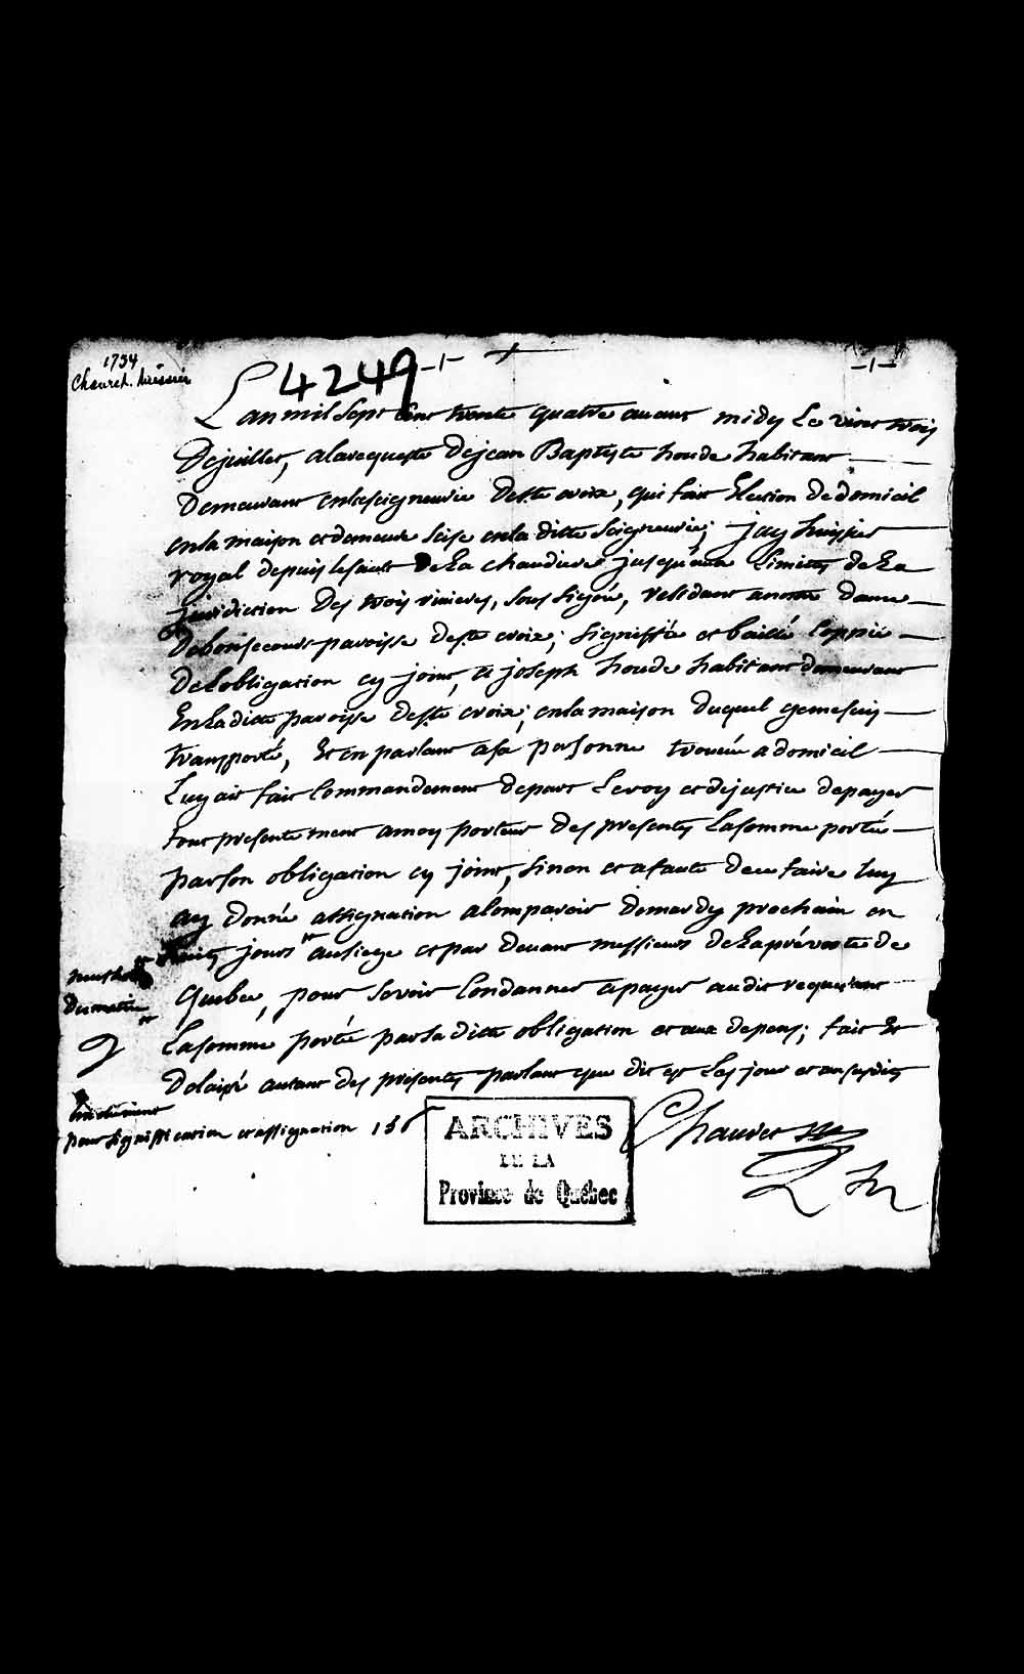 1734
Chauvet. huissier
4249 -1-
-1-
Lan mil sept cent trente quatre auant midy Le vint trois
Dejuillet, alarequeste Dejean Baptiste houde habitant
Demeurant enlaseigneurie deste croix, qui fait Election dedomicil
enla maison et demeure scise enla ditte seigneurie; jay huissier
royal depuis lesault De La chaudiere jusquaux Limittes de La
juridiction des trois rivieres, sous signé, residant a notre dame
Debonsecours paroisse deste croix; signiffié et baillé coppie
De Lobligation cy joint, a joseph houde habitant demeurant
En La ditte paroisse deste croix; enla maison duquel je me suis
transporté, Et en parlant a sa personne trouvé a domicil
Luy ait fait Commandement depart Le roy et dejustice depayer
tout presentement amoy porteur des presentes La somme porté
parson obligation cy joint, sinon et a faute dece faire Luy
ay donné assignation a Comparoir de mardy prochain en
huit jours au siege et par devant messieurs de La prévosté de
neuf heures
Du matin
Quebec, pour sevoir Condanner apayer audit requerant
La somme porté par La ditte obligation et aux depens; fait Et
Delaissé autant des presentes parlant que dit est Les jour et an susdits
pour signiffication et assignation
Chauvet
ARCHIVES
DE LA
Province de Québec